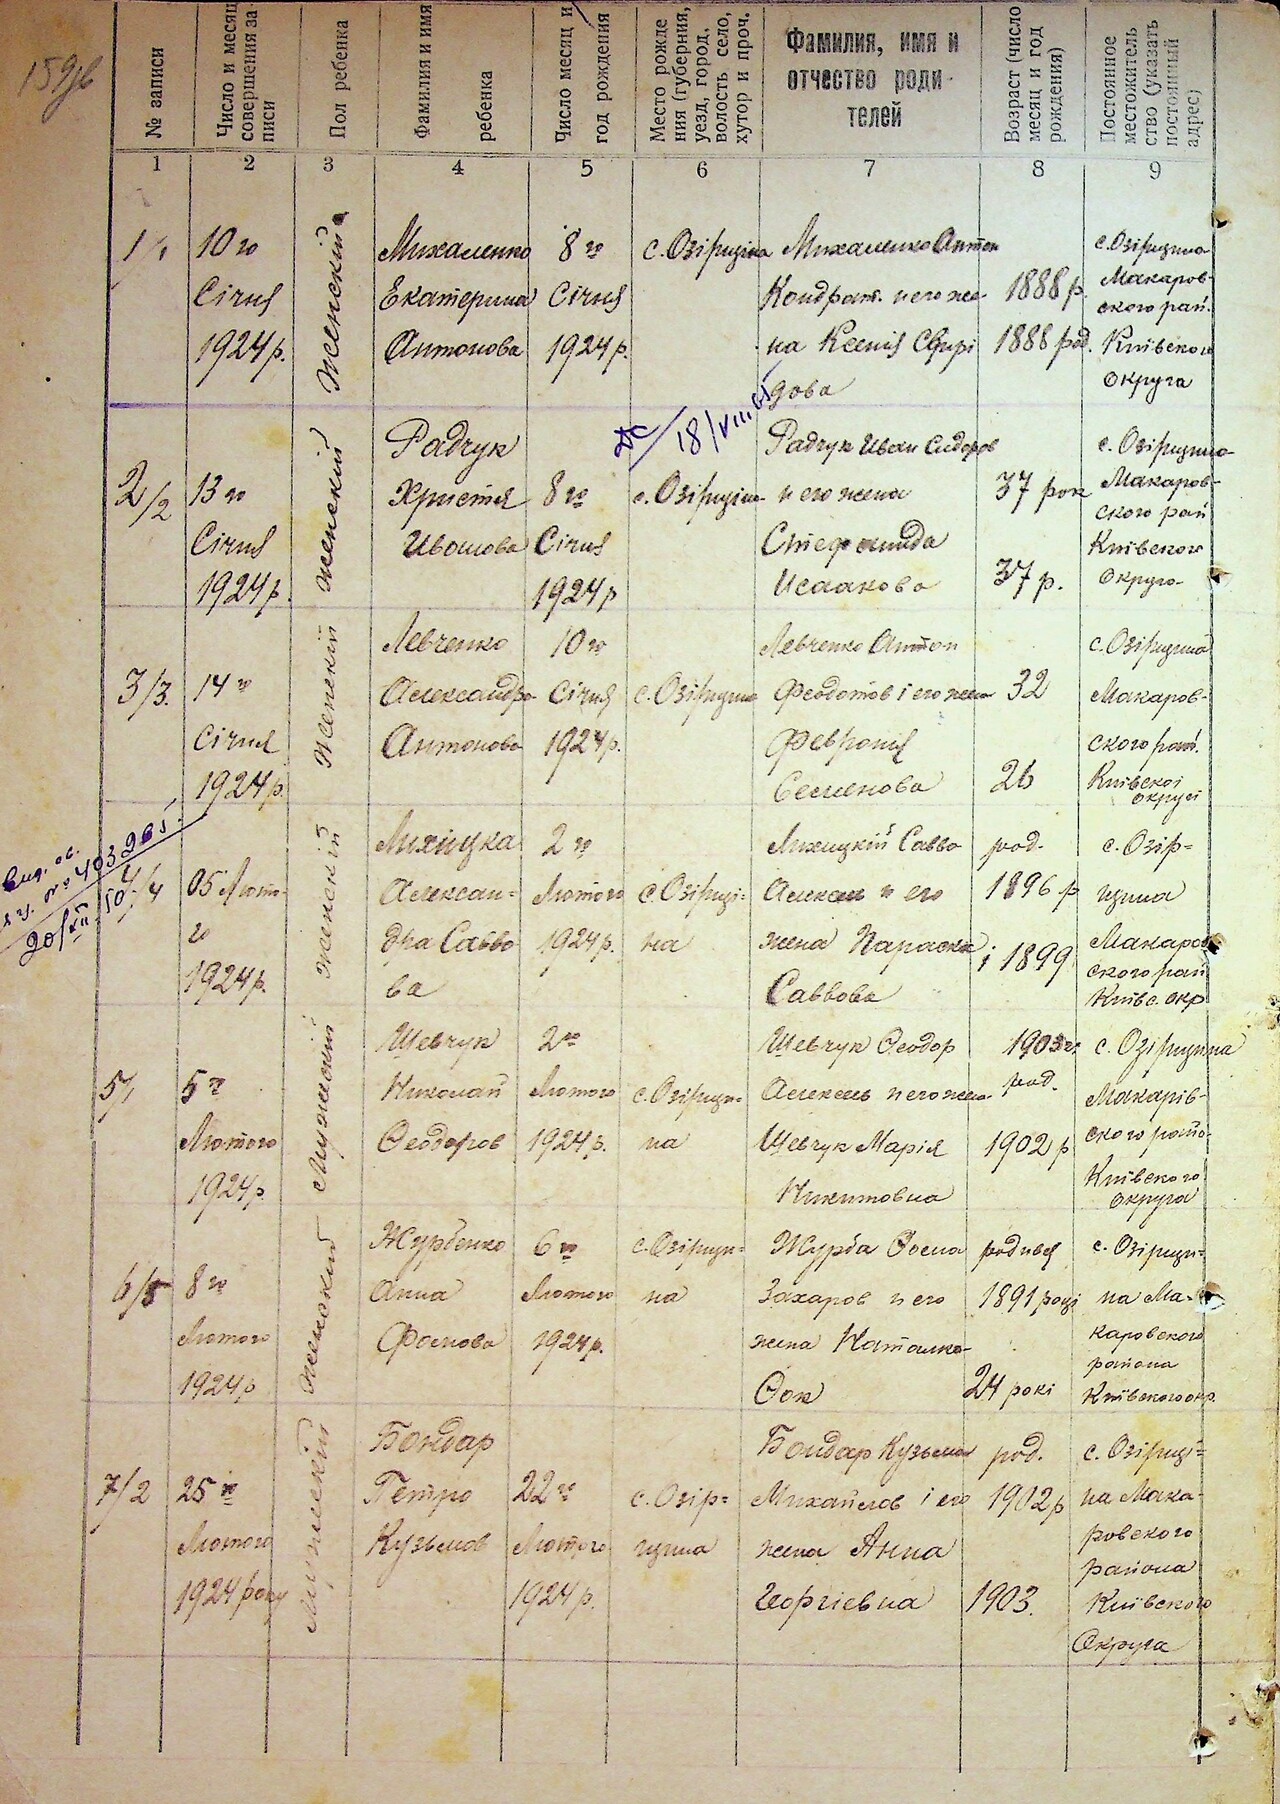 № записи
Число и месяц
совершения за-
писи
Пол ребенка
Фамилия и имя
ребенка
Число месяц и
год рождения
Место рожде
ния (губерния,
уезд, город,
волость село,
хутор и проч.
Фамилия, имя и
отчество роди-
телей
Возраст (число
месяц и год
рождения)
Постоянное
местожитель
ство (указать
постоянный
адрес)
1 2 3 4 5 6 7 8 9
1/1
10 го
Січня
1924 р.
Женский
Михаленко
Екатерина
Антонова
8 го
Січня
1924 р.
с. Озірщина
Михаленко Антон
Кондрат. и его же
на Ксенія
дова
1888 р.
1888 род.
с. Озірщина
Макаров-
ского рай.
Київского
Округа
18/VIII
2/2
13 го
Січня
1924 р.
Женский
Радчук
Христя
Ивонова
8 го
Січня
1924 р
с. Озірщина
Радчук Иван Сидоров
и его жена
Исаакова
37 рок
37 р.
с. Озірщина
Макаров-
ского рай
Київского
Округа
3/3.
14 го
Січня
1924 р.
Женский
Левченко
Александра
Антонова
10 го
Січня
1924 р.
с. Озірщина
Левченко Антон
Феодотов і его жена
Февронія
Семенова
32
26
с. Озірщина
Макаров-
ского рай.
Київскої
округи
4/4
05 Люто-
го
1924 р.
Женскій
Лихицка
Алексан=
дра Савво
ва
2 го
Лютого
1924 р.
с. Озірщі=
на
Лихицкій Савво
Алексан и его
жена Параска
Саввова
род.
1896 р
і 1899
с. Озір=
щина
Макаров
ского рай
Київс. окр
5/1
5 го
Лютого
1924 р.
Мужский
Шевчук
Николай
Феодоров
2 го
Лютого
1924 р.
с. Озірщи=
на
Шевчук Феодор
Алексеь и его жена
Шевчук Марія
Никитовна
1903 г.
род.
1902 р
с. Озірщина
Макарів-
ского райо-
Київского
округа
6/5
8 го
Лютого
1924 р
Женский
Журбенко
Анна
Фомова
6 го
Лютого
1924 р.
с. Озірщи=
на
Журба Фома
Захаров и его
жена Наталка
Фок
родився
1891 році
24 рокі
с. Озірщи=
на Ма-
каровского
района
Київского окр.
7/2
25 го
Лютого
1924 року
Мужский
Бондар
Петро
Кузьмов
22 го
Лютого
1924 р.
с. Озір=
щина
Бондар Кузьма
Михайлов і его
жена Анна
Георгіевна
род.
1902 р
1903.
с. Озірщі=
на Мака-
ровского
района
Київского
Округа